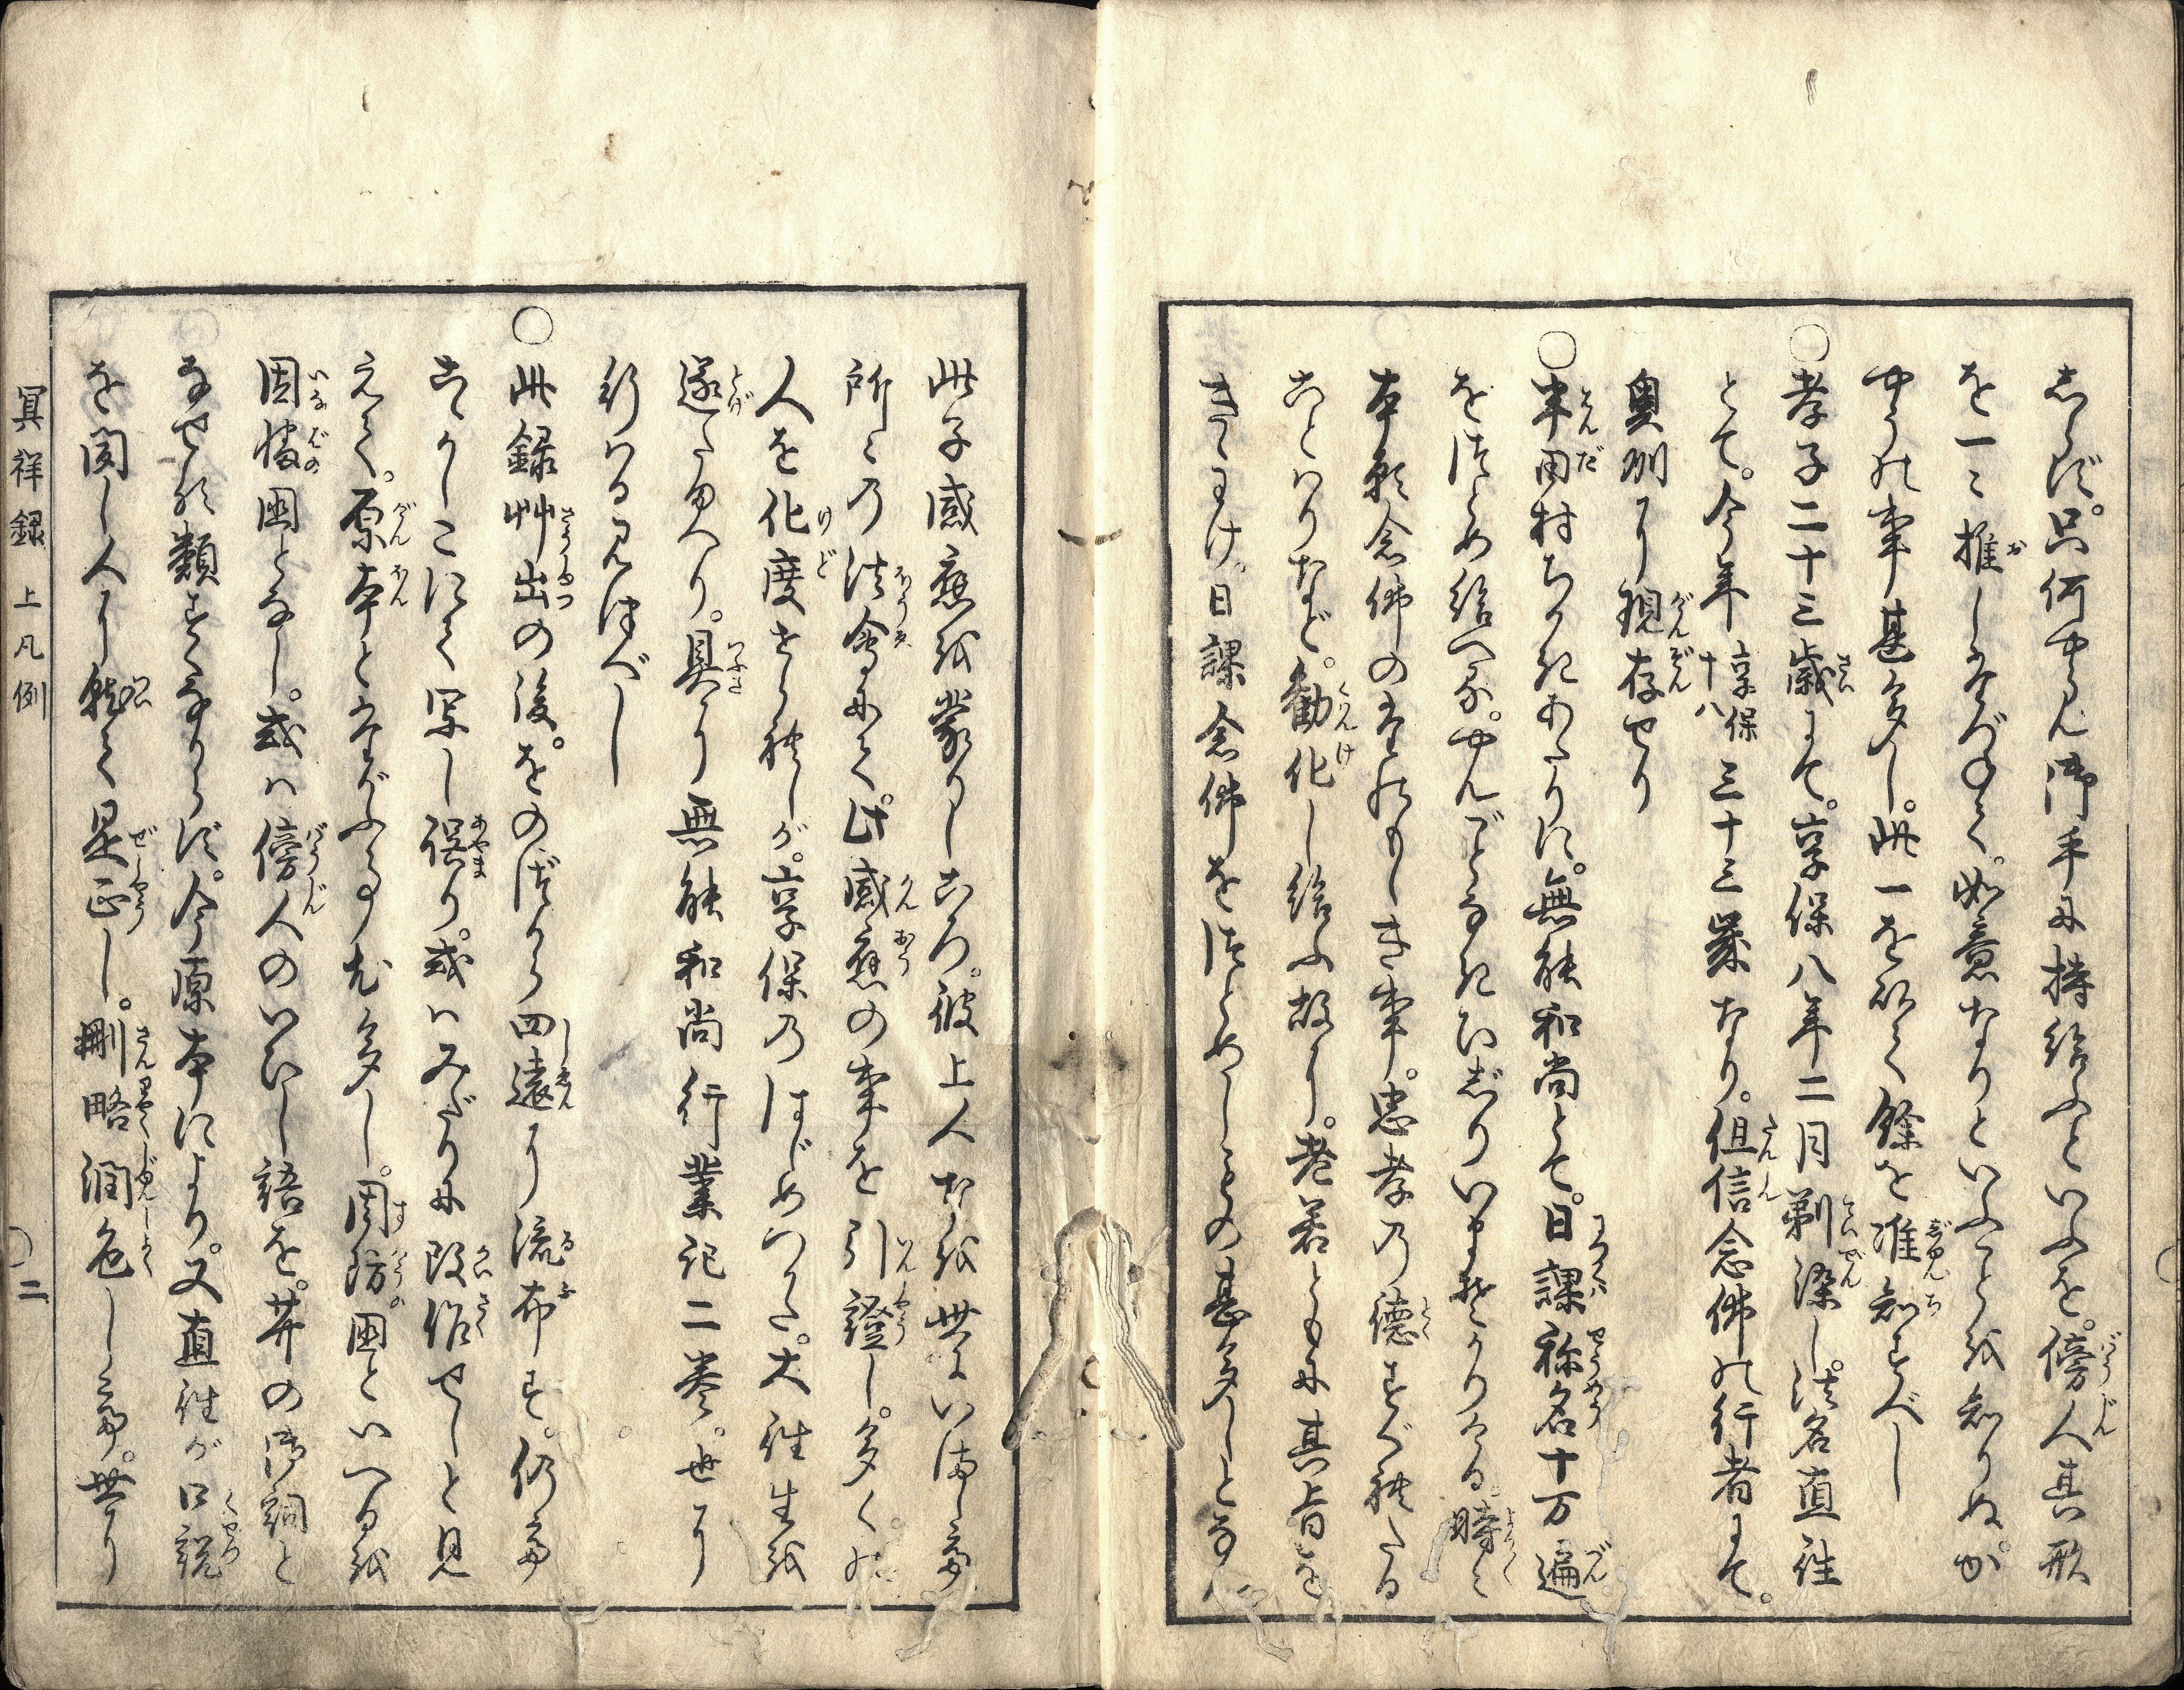 しらず。只何やらん御手に持給ふといふを。傍人其形
を一〻推しかぞへて。如意なりといふことを知りぬ。か
やうの事甚多し。此一を以て餘を准知すべし
○孝子二十三歳にて。享保八年二月剃染し。法名直往
とて。今年享保十八三十三歳なり。但信念佛の行者にて。
奥州に現存せり
○半田村ちかきあたりに。無能和尚とて。日課称名十万遍
をつとめ給へる。やんごとなきひじりいまそかりける。時〻
本願念佛のたのもしき事。忠孝の徳すぐれたる
ことハりなど。勧化し給ふ故に。老若ともに其旨を
きゝうけ。日課念佛をつとめしもの甚多しとなん
此子感應を蒙りしころ。彼上人なを世にいまして。
所〻の法會にて。此感應の事を引證し。多くの
人を化度せられしが。享保のはじめつかた。大往生を
遂たまへり。具に無能和尚行業記二巻。世に
行ハる見つべし
○此録艸出の後。をのづから四遠に流布す。仍て
こゝかしこにて写し誤り。或ハみだりに改作せしと見
えて。原本とたがふる事尤多し。周防国といへるを
因幡国となし。或ハ傍人のいひし語を。并の御詞と
なせる類すくなからず。今原本により。又直往が口説
を聞し人に就て是正し。刪略潤色して。世に
冥祥録 上凡例 二